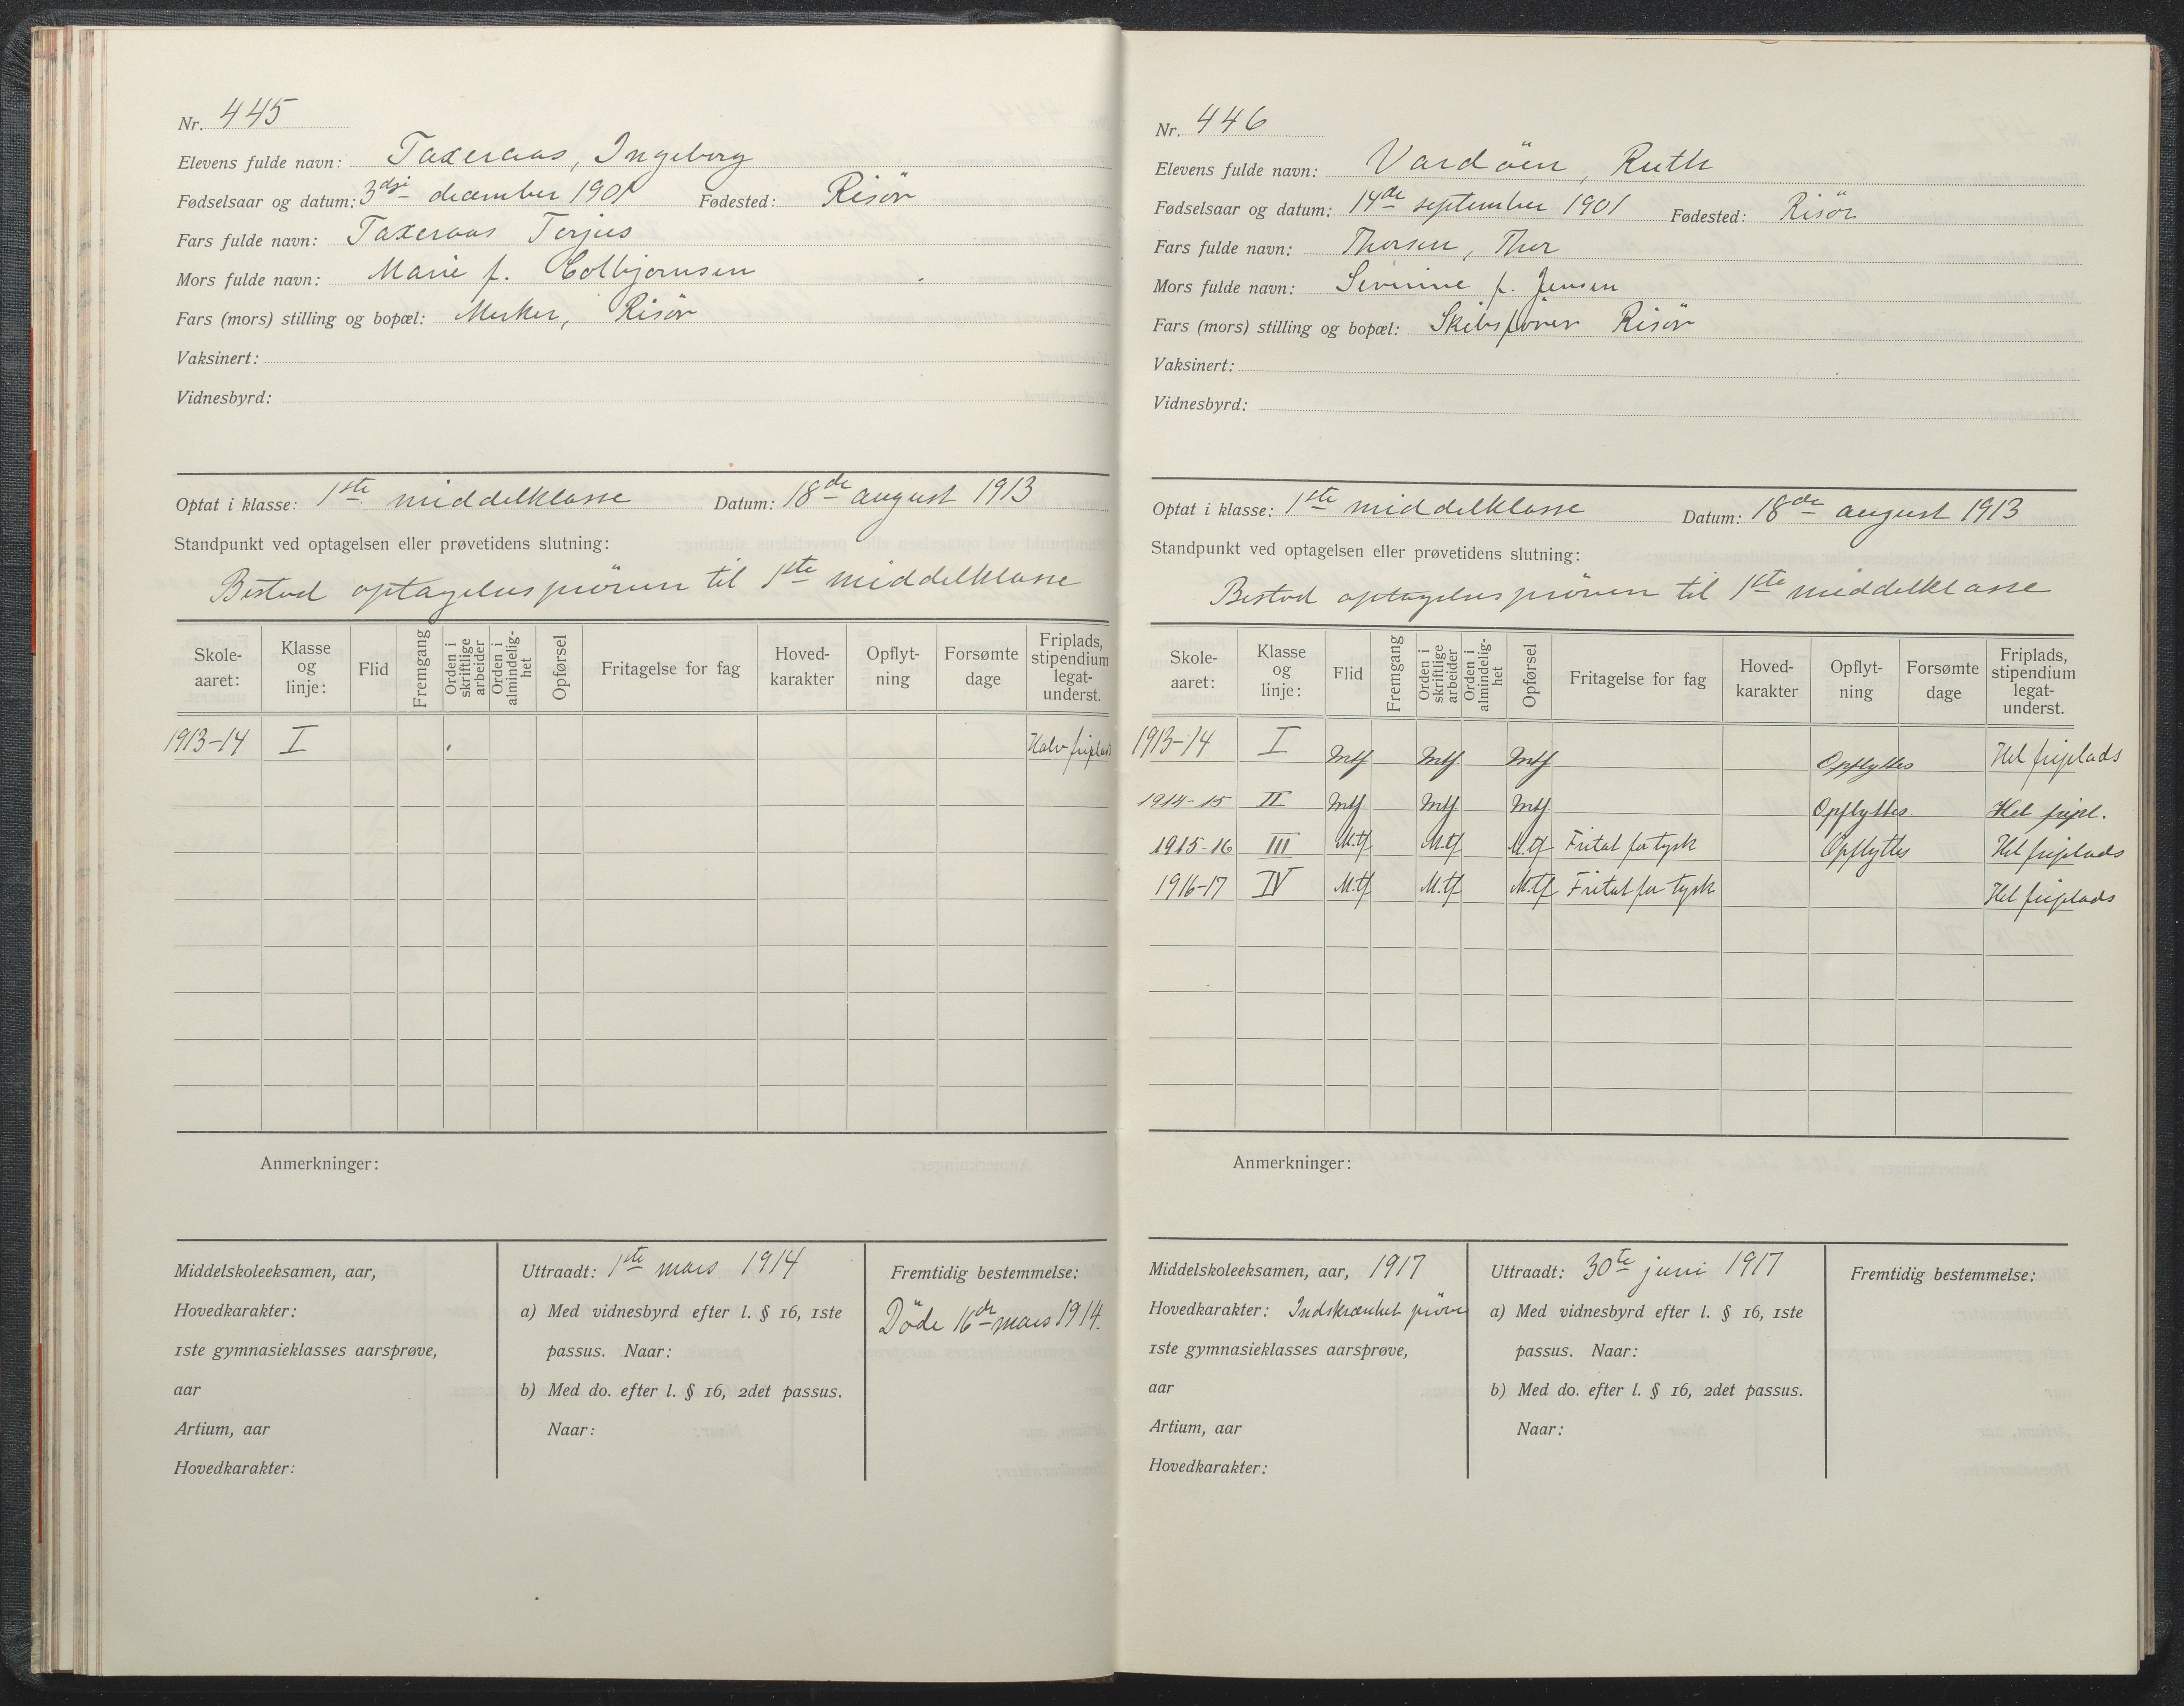 Nr. 445
Elevens fulde navn: Taxeraas, Ingeborg
Fødselsaar og datum: 3dje december 1901 Fødested: Risör
Fars fulde navn: Taxeraas Torjus
Mors fulde navn: Marie f. Colbjørnsen
Fars (mors) stilling og bopæl: Mœker, Risör
Vaksinert:
Vidnesbyrd:
Optat i klasse: 1ste middelklasse Datum: 18de august 1913
Standpunkt ved optagelsen eller prøvetidens slutning:
Bestod optagelsespröven til 1ste middelklasse
Skole-aaret: Klasse og linje: Flid Fremgang Orden i skriftlige arbeider Orden i almindelig-het Opførsel Fritagelse for fag Hoved-karakter Opflyt-ning Forsømte dage Friplads, stipendium legat-underst.
1913-14 I Halv friplads
Anmerkninger:
Middelskoleeksamen, aar,
Hovedkarakter:
1ste gymnasieklasses aarsprøve,
aar
Artium, aar
Hovedkarakter:
Uttraadt: 1ste mars 1914
a) Med vidnesbyrd efter l. § 16, 1ste
passus. Naar:
b) Med do. efter l. § 16, 2det passus.
Naar:
Fremtidig bestemmelse:
Döde 16de mars 1914.
Nr. 446
Elevens fulde navn: Vardöen, Ruth
Fødselsaar og datum: 14de september 1901 Fødested: Risör
Fars fulde navn: Thorsen, Thor
Mors fulde navn: Severine f. Jensen
Fars (mors) stilling og bopæl: Skibsförer Risör
Vaksinert:
Vidnesbyrd:
Optat i klasse: 1ste middelklasse Datum: 18de august 1913
Standpunkt ved optagelsen eller prøvetidens slutning:
Bestod optagelsespröven til 1ste middelklasse
Skole-aaret: Klasse og linje: Flid Fremgang Orden i skriftlige arbeider Orden i almindelig-het Opførsel Fritagelse for fag Hoved-karakter Opflyt-ning Forsømte dage Friplads, stipendium legat-underst.
1913-14 I Mtf Mtf. Mtf Opflyttes Hel friplads
1914-15 II Mtf. Mtf. Mtf. Opflyttes. Hel fripl.
1915-16 III M.tf M.tf M.tf Fritat for tysk Opflyttes Hel friplads
1916-17 IV M.tf M.tf M.tf Fritat for tysk Hel friplads
Anmerkninger:
Middelskoleeksamen, aar, 1917
Hovedkarakter: Indskrænket pröve
1ste gymnasieklasses aarsprøve,
aar
Artium, aar
Hovedkarakter:
Uttraadt: 30te juni 1917
a) Med vidnesbyrd efter l. § 16, 1ste
passus. Naar:
b) Med do. efter l. § 16, 2det passus.
Naar:
Fremtidig bestemmelse: